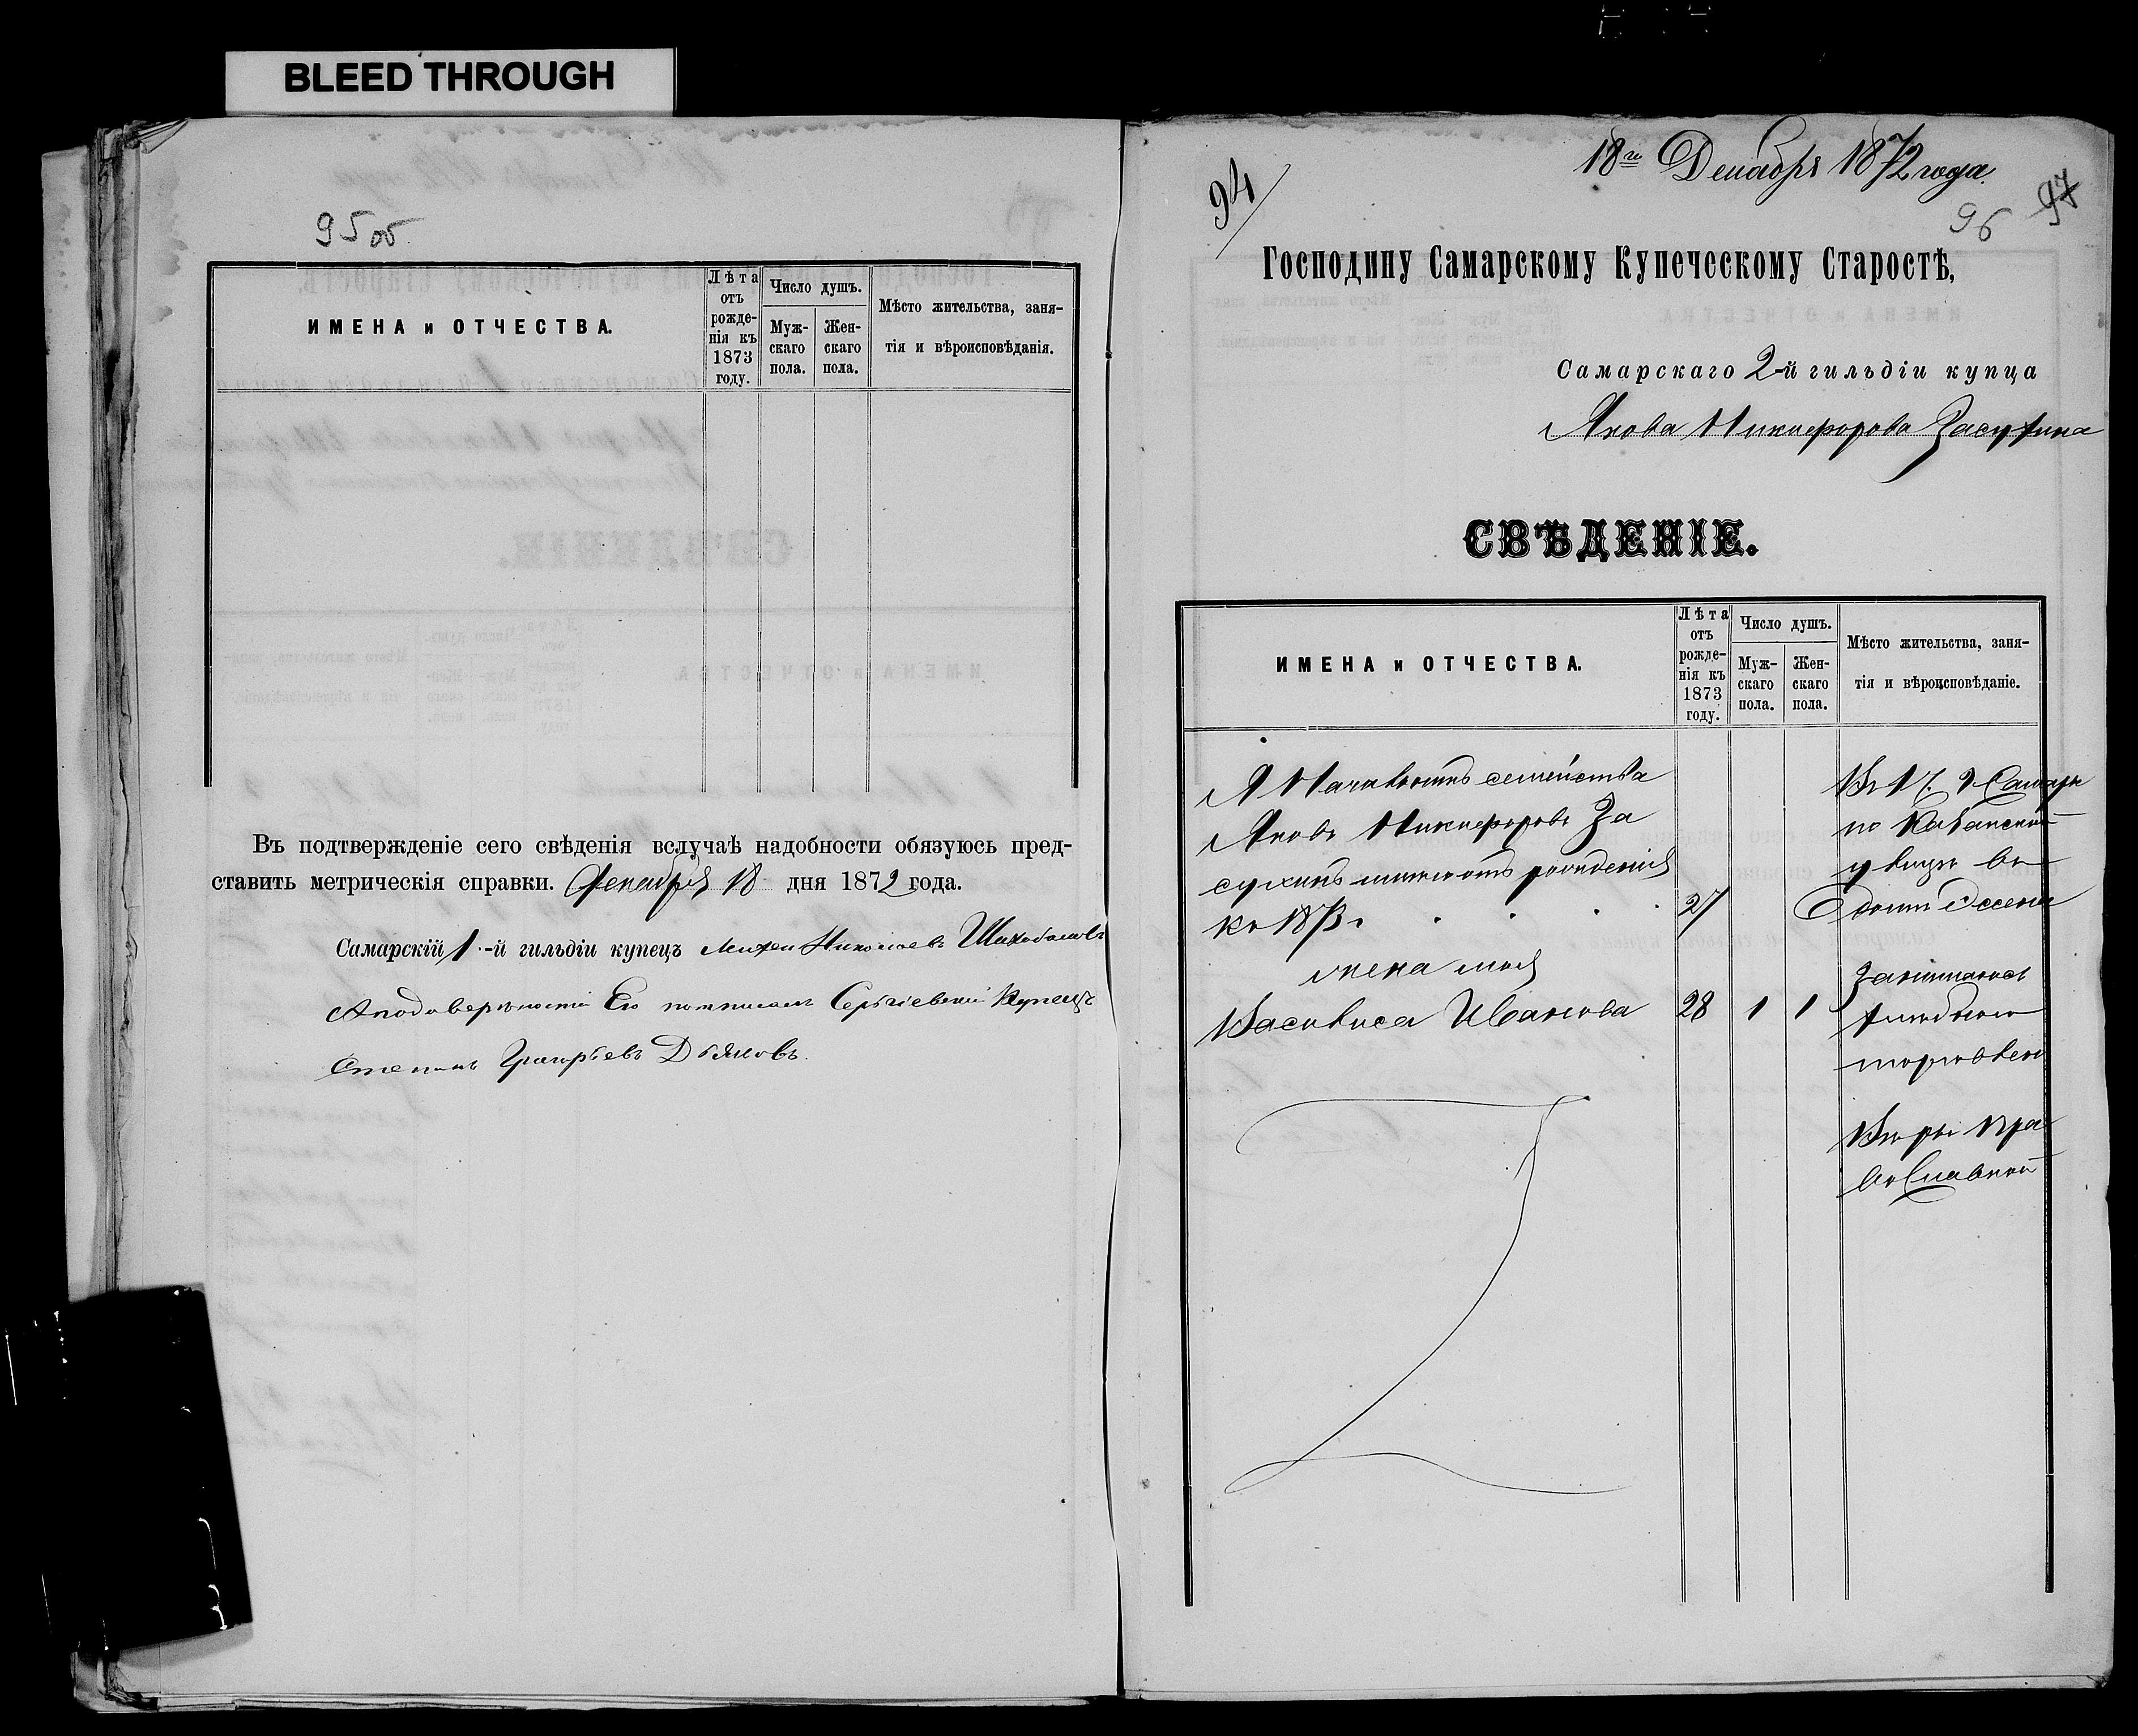 BLEED THROUGH
95 об.
ИМЕНА и ОТЧЕСТВА.
Лѣта отъ рожде-нія къ 1873 году.
Число душъ.
Муж-скаго пола.
Жен-скаго пола.
Мѣсто жительства, заня-
тія и вѣроисповѣданія.
Въ подтвержденіе сего свѣденія вслучаѣ надобности обязуюсь пред-
ставить метрическія справки. Декабря 18 дня 1872 года.
Самарскій 1-й гильдіи купецъ Михеи Николаевъ Шихобаловъ
Аподоверѣности Его потписалъ Сергіевский Купецъ
Степанъ Григорьевъ Дьяковъ.
94
18го Декабря 1872 года.
96 97
Господину Самарскому Купеческому Старостѣ,
Самарскаго 2-й гильдіи купца
Якова Никифорова Засухина
СВѢДЕНІЕ.
ИМЕНА и ОТЧЕСТВА.
Лѣта отъ рожде-нія къ 1873 году.
Число душъ.
Муж-скаго пола.
Жен-скаго пола.
Мѣсто жительства, заня-
тія и вѣроисповѣданіе.
Я Начальникъ семейства
Яковъ Никифоровъ За
сухинъ отъ рожденія
къ 1873 27
жена моя
Василиса Иванова 28 1 1
Въ Г. Самаре
по Казанской
улице во
доме
Занимаюсь
хлебною
торговлею
Веры Пра
вославной